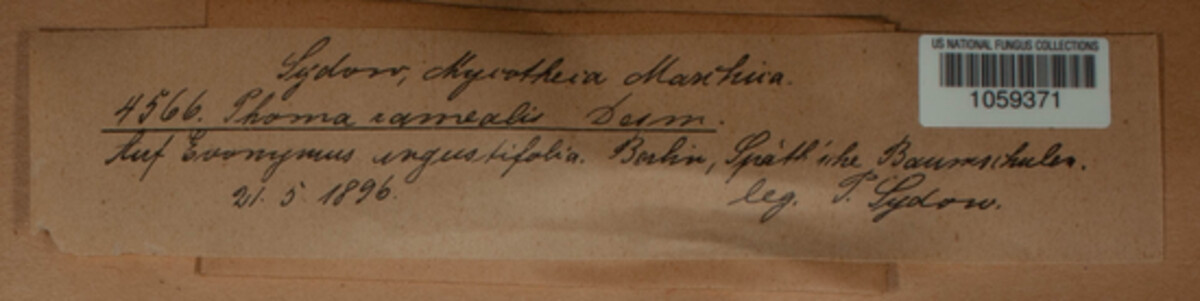 US NATIONAL FUNGUS COLLECTIONS
1059371
Sydow, Mycotheca Marchica.
4566. Phoma ramealis Desm.
Auf Evonymus angustifolia. Berlin, Späth'sche Baumschulen.
21. 5 1896.
leg. P. Sydow.